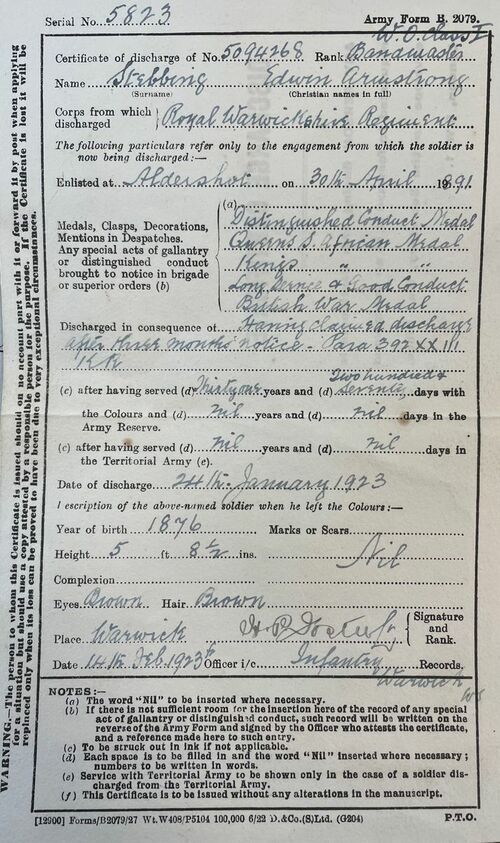 Serial No. 5823 Army Form B. 2079.
W.O. Class I
Certificate of discharge of No. 5094268 Rank Bandmaster
Name Stebbing Edwin Armstrong
(Surname) (Christian names in full)
Corps from which discharged } Royal Warwickshire Regiment
The following particulars refer only to the engagement from which the soldier is
now being discharged:—
Enlisted at Aldershot on 30th April 1891
(a)
Medals, Clasps, Decorations,
Mentions in Despatches.
Any special acts of gallantry
or distinguished conduct
brought to notice in brigade
or superior orders (b)
Distinguished Conduct Medal
Queens S. African Medal
Kings " "
Long Service & Good Conduct
British War Medal
Discharged in consequence of Having claimed discharge
after three months' notice - Para 392 XXIII
KR
(c) after having served (d) Thirty one years and (d) Two hundred & seventy days with
the Colours and (d) nil years and (d) nil days in the
Army Reserve.
(c) after having served (d) nil years and (d) nil days in
the Territorial Army (e).
Date of discharge 24th January 1923
Description of the above-named soldier when he left the Colours:—
Year of birth 1876 Marks or Scars
Height 5 ft 8½ ins. Nil
Complexion
Eyes Brown Hair Brown
Place Warwick { Signature and Rank.
Date 14th Feb 1923 Officer i/c Infantry Records.
Warwick
NOTES:—
(a) The word "Nil" to be inserted where necessary.
(b) If there is not sufficient room for the insertion here of the record of any special
act of gallantry or distinguished conduct, such record will be written on the
reverse of the Army Form and signed by the Officer who attests the certificate,
and a reference made here to such entry.
(c) To be struck out in ink if not applicable.
(d) Each space to be filled in and the word "Nil" inserted where necessary;
numbers to be written in words.
(e) Service with Territorial Army to be shown only in the case of a soldier dis-
charged from the Territorial Army.
(f) This Certificate is to be issued without any alterations in the manuscript.
[12900] Forms/B2079/27 Wt.W408/P5104 100,000 6/22 D.&Co.(S)Ltd. (G204) P.T.O.
WARNING.—The person to whom this Certificate is issued should on no account part with it or forward it by post when applying
for a situation but should use a copy attested by a responsible person for the purpose. If the Certificate is lost it will be
replaced only when its loss can be proved to have been due to very exceptional circumstances.